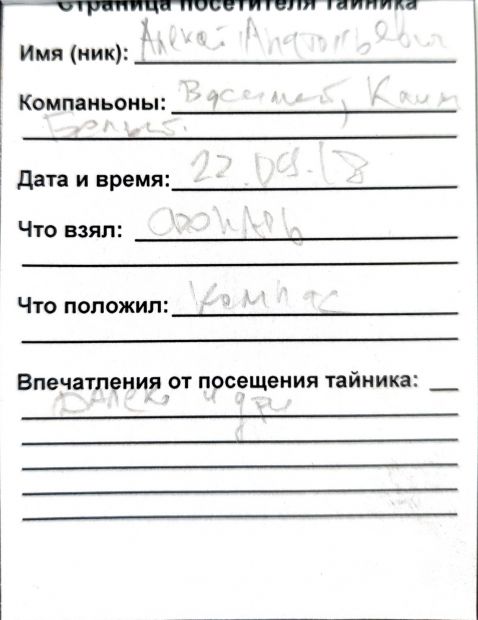 Страница посетителя тайника
Имя (ник): Алексей Анатольевич
Компаньоны: Василий,
Дата и время: 22.09.18
Что взял: фонарь
Что положил: компас
Впечатления от посещения тайника:
Далеко и